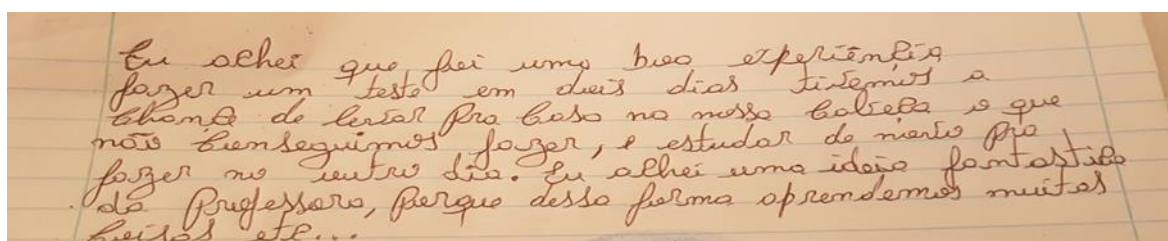 Eu achei que foi uma boa experiência
fazer um teste em dois dias tivemos a
chance de levar pra casa na nossa cabeça o que
não conseguimos fazer, e estudar de novo pra
fazer no outro dia. Eu achei uma ideia fantastica
da Professora, porque dessa forma aprendemos muitas
coisas etc...